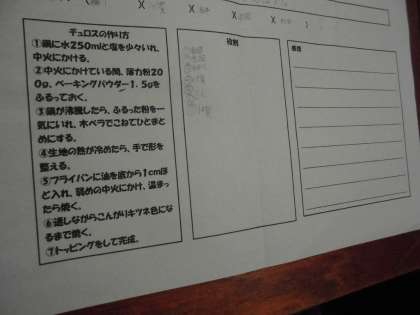 チュロスの作り方
①鍋に水250mlと塩を少々いれ、
中火にかける。
②中火にかけている間、薄力粉20
0g、ベーキングパウダー1.5gを
ふるっておく。
③鍋が沸騰したら、ふるった粉を一
気にいれ、木ベラでこねてひとまと
めにする。
④生地の熱が冷めたら、手で形を
整える。
⑤フライパンに油を底から1cmほ
ど入れ、弱めの中火にかけ、温まっ
たら焼く。
⑥返しながらこんがりキツネ色にな
るまで焼く。
⑦トッピングをして完成。
役割
感想